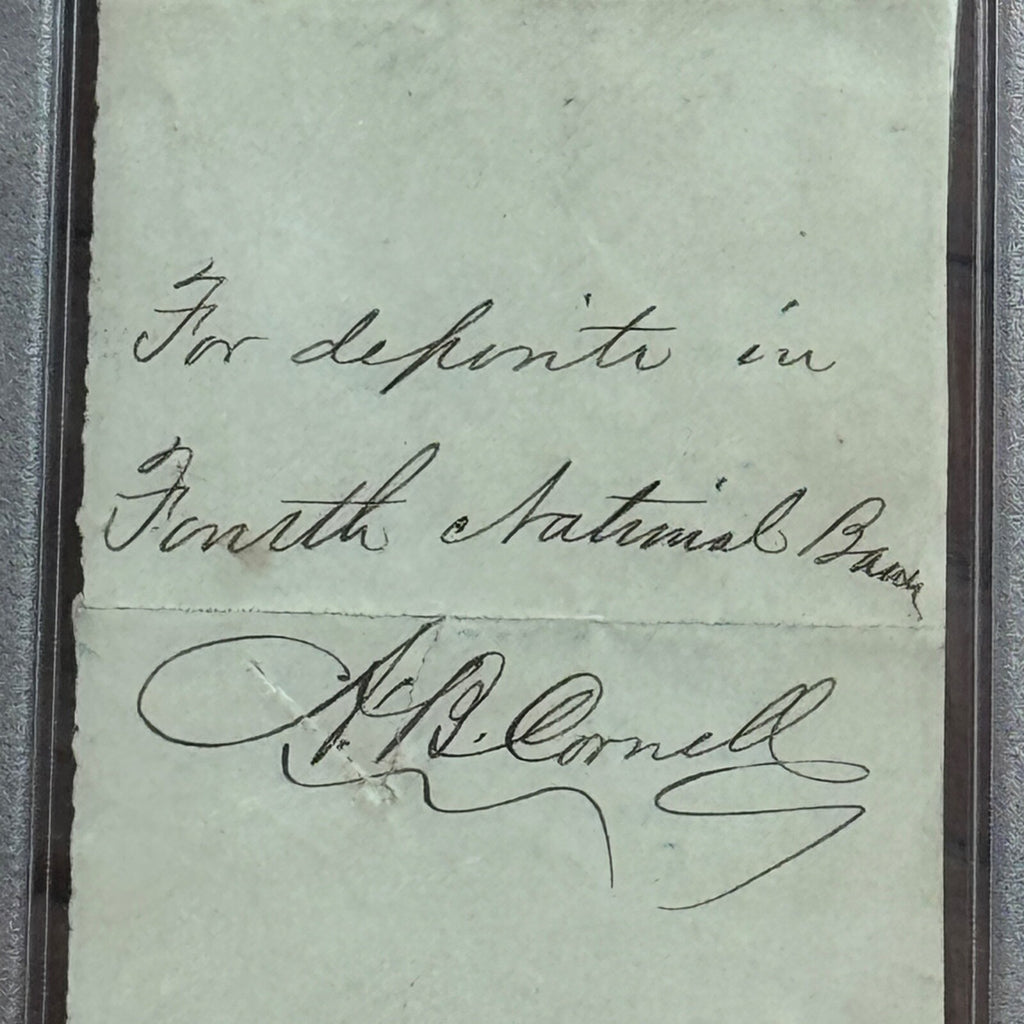 For deposite in
Fourth National Bank
A. B. Cornell